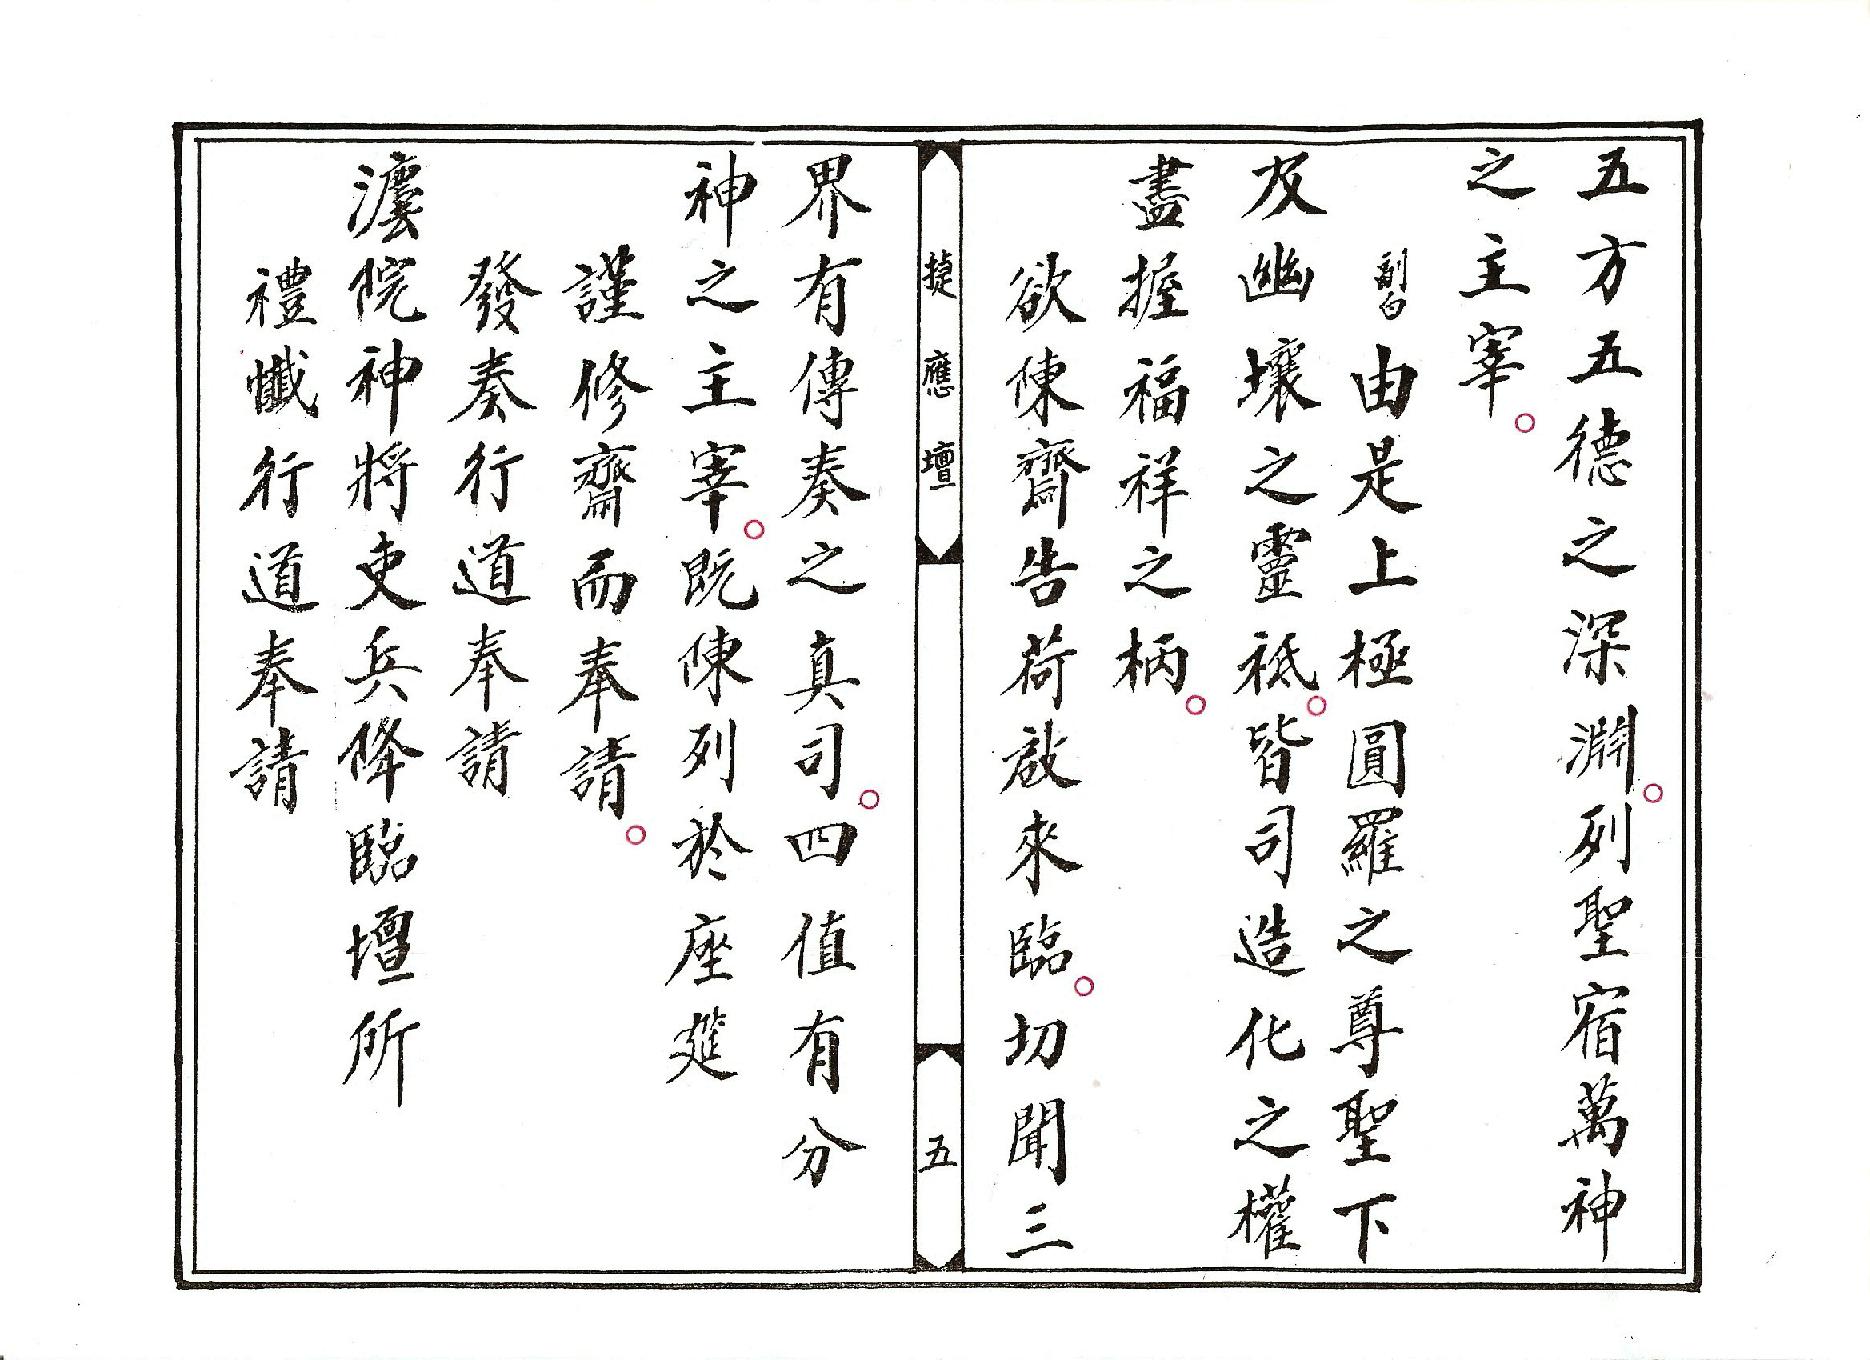 五方五德之深淵。列聖宿萬神
之主宰。
副白 由是上極圓羅之尊聖下
及幽壤之靈祇。皆司造化之權
盡握福祥之柄。
欲陳齋告荷啟來臨。切聞三
捷應壇
五
界有傳奏之真司。四值有分
神之主宰。既陳列於座筵
謹修齋而奉請。
發奏行道奉請
院神將吏兵降臨壇所
禮懺行道奉請